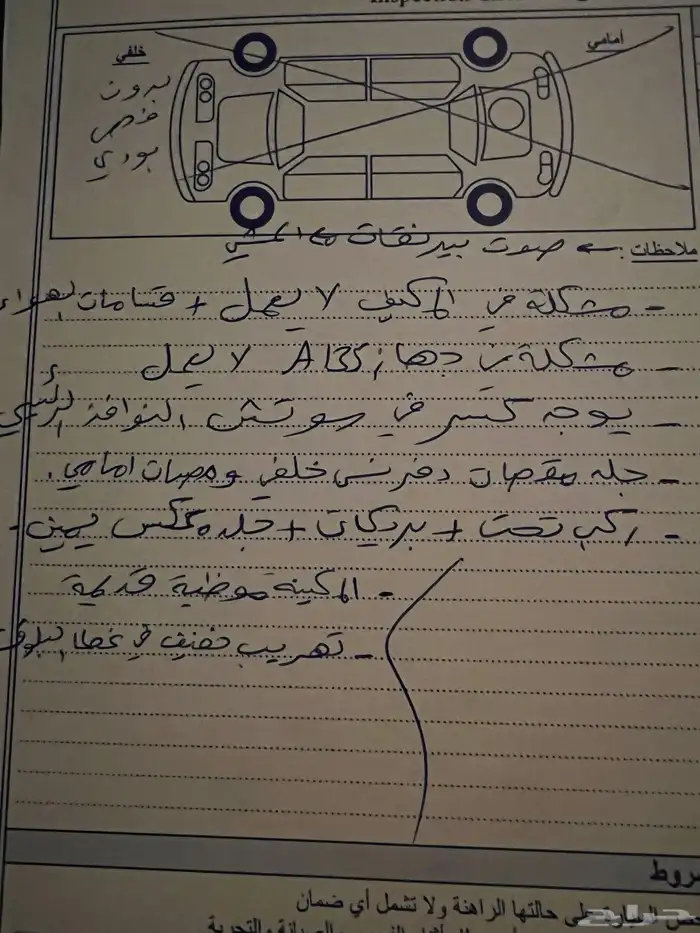 Inspection
أمامي
خلفي
بدون
فحص
بودي
ملاحظات : ← صوت بيرنقات مع المشي
- مشكلة في المكيف لا يعمل + قسامات الهواء
- مشكلة في جهاز ABS لا يعمل
- يوجد كسر في سوتش النوافذ الرئيسي
- جلد مقصات دفرنس خلفي ومقصات امامي .
- ركب تحت + بريكات + جلد عكس يمين -
- المكينة موضبة قديمة
- تهريب خفيف في غطا البلوف
روط
حص السيارة على حالتها الراهنة ولا تشمل أي ضمان
الصيانة والتجربة